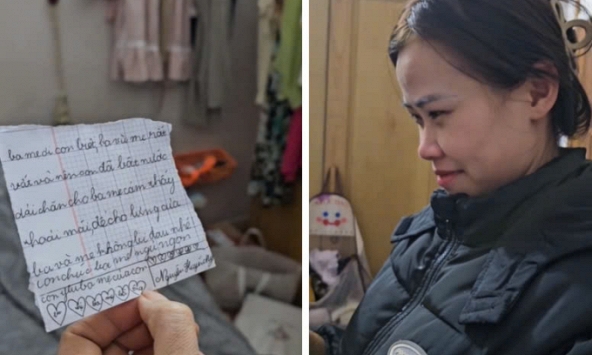 ba mẹ ơi con biết ba và mẹ rất
vất vả nên con đã bật nước
dải chăn cho ba mẹ cảm thấy
thoải mái để cho lưng của
ba và mẹ không bị đau nhé!
con chúc ba mẹ ngủ ngon
con yêu ba mẹ của con
Nguyễn